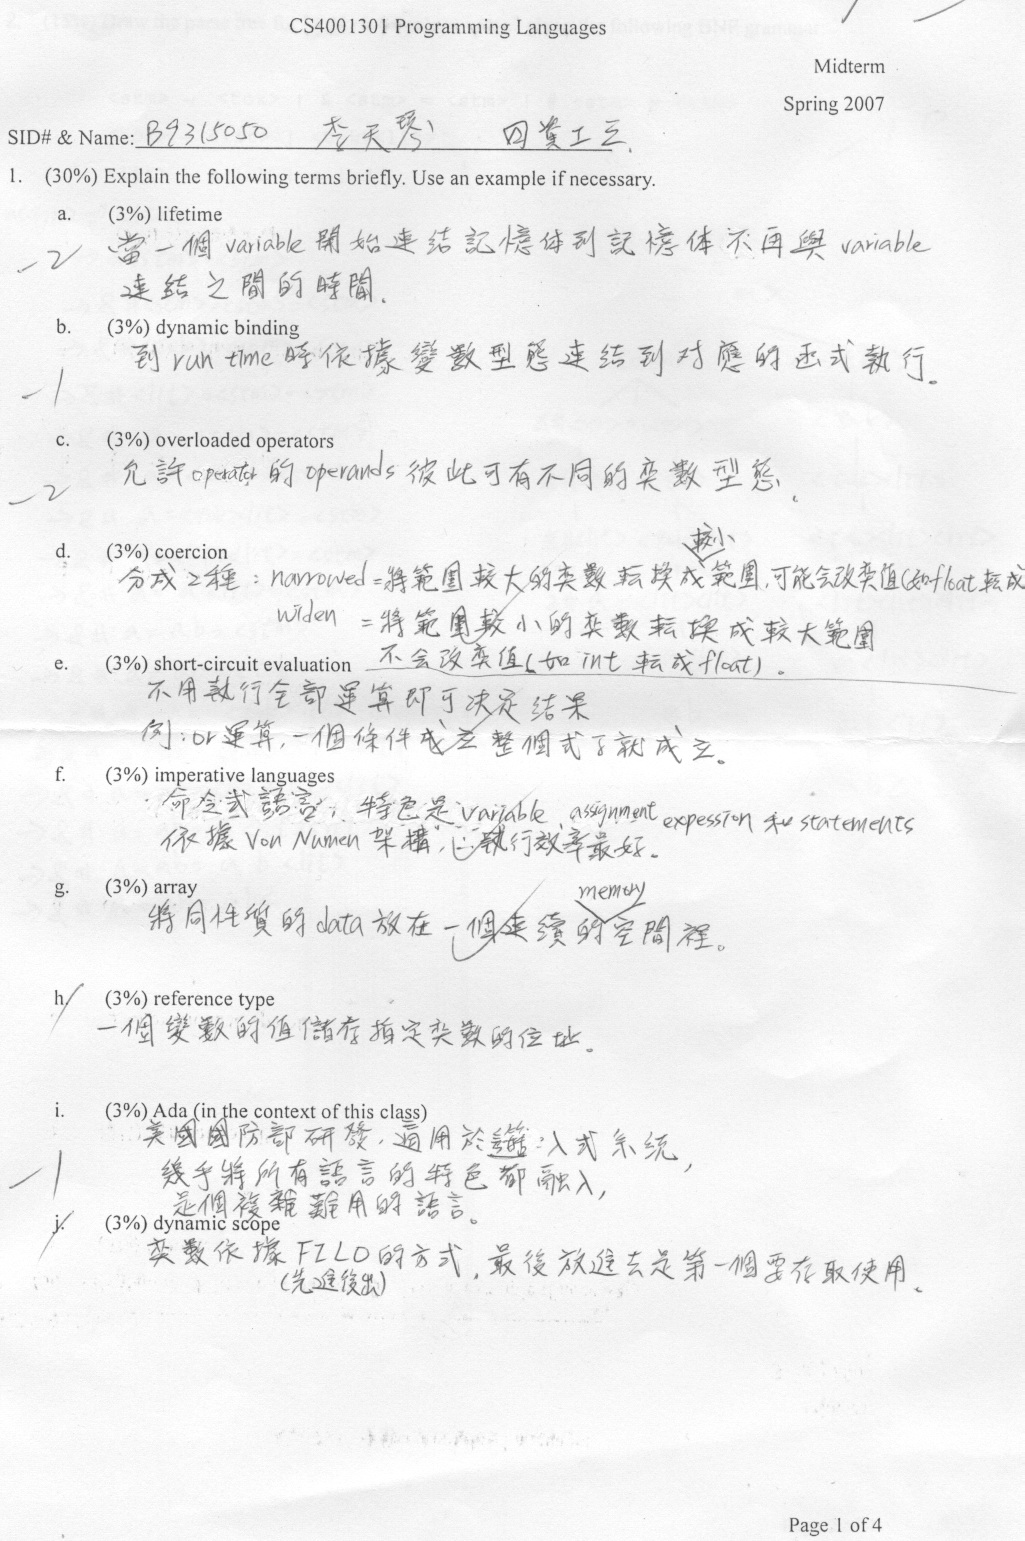 CS4001301 Programming Languages
Midterm
Spring 2007
SID# & Name: B9315050 李天琴 四資工三
1. (30%) Explain the following terms briefly. Use an example if necessary.
a. (3%) lifetime
-2 當一個 variable 開始連結記憶体到記憶体不再與 variable
連結之間的時間.
b. (3%) dynamic binding
到 run time 時依據變數型態連結到对應的函式執行。
-1
c. (3%) overloaded operators
允許 operator 的 operands 彼此可有不同的変數型態.
-2
d. (3%) coercion
較小
分成2種：narrowed=將範圍較大的変數転換成範圍,可能会改変值(如float転成
widen =將範圍較小的変數転換成較大範圍
e. (3%) short-circuit evaluation 不会改変值(如int転成float)。
不用執行全部運算即可決定結果
例:or運算,一個條件成立整個式子就成立。
f. (3%) imperative languages
命令式語言,特色是 variable, assignment expession 和 statements
依據 Von Numen 架構,它執行效率最好。
g. (3%) array
memory
將同性質的 data 放在一個連續的空間裡。
h. (3%) reference type
一個變數的值儲存指定変數的位址。
i. (3%) Ada (in the context of this class)
美國國防部研發,適用於 入式系統,
-1 幾乎將所有語言的特色都融入,
是個複雜難用的語言。
j. (3%) dynamic scope
変數依據 FILO 的方式,最後放進去是第一個要存取使用.
(先進後出)
Page 1 of 4